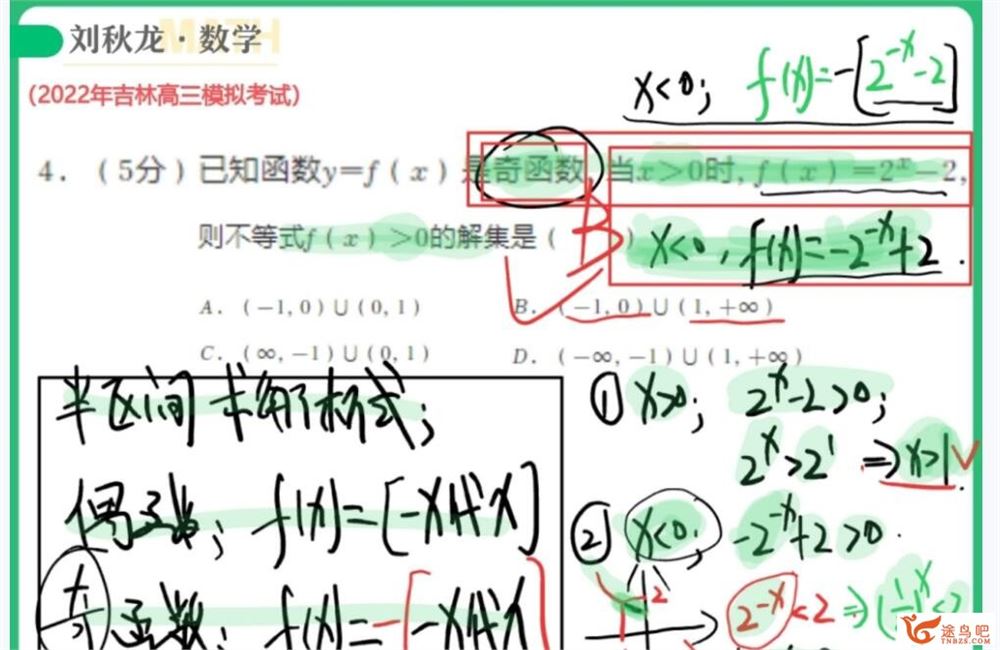 刘秋龙·数学
MATH
(2022年吉林高三模拟考试)
x<0; f(x)=-[2^{-x}-2]
4.(5分)已知函数y=f(x)是奇函数,当x>0时,f(x)=2^x-2,
则不等式f(x)>0的解集是( B )
x<0, f(x)=-2^{-x}+2.
A.(-1,0)∪(0,1)
B.(-1,0)∪(1,+∞)
C.(∞,-1)∪(0,1)
D.(-∞,-1)∪(1,+∞)
半区间求解析式;
偶函数; f(x)=[-x代x]
奇函数; f(x)=-[-x代x]
① x>0; 2^x-2>0;
2^x>2^1 ⇒x>1
② x<0; -2^{-x}+2>0.
2^{-x}<2 ⇒
途鸟吧
TNBZS.COM